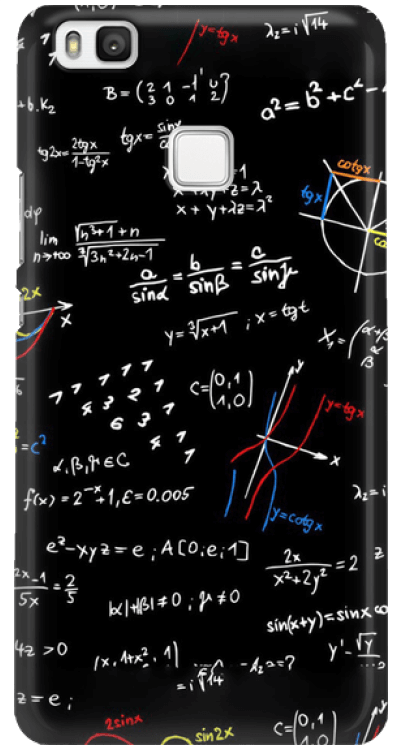 y=tgx
λ₂=i√14
+b.K₂
B=(2 1 -1 0
3 0 1 2)
a²=b²+c²-
tg2x=2tgx/1-tg²x
tgx=sinx/
=1
+z=λ
x+y+λz=λ²
cotgx
tgx
dφ
lim n→+∞ √n³+1+n/∛3n²+2n-1
a/sinα=b/sinβ=c/sinγ
2x
x
y=∛x+1 ; x=tgt
1 1 1 1 1
4 3 2 1
6 3 1
4 1
1
C=(0,1
1,0)
y
y=tgx
=c²
α,β,γ∈C
x
λ₂=i
f(x)=2⁻ˣ+1,ε=0.005
y=cotgx
eᶻ-xyz=e ; A[0;e;1]
2x/x²+2y²=2
z
2x-1/5x=2/5
|α|+|β|≠0 ; γ≠0
sin(x+y)=sinx co
4z>0
(x,1+x²,1)
=i√14
λ₂=?
y'-√y
z=e ;
2sinx
sin2x
C=(0,1
1,0)
y